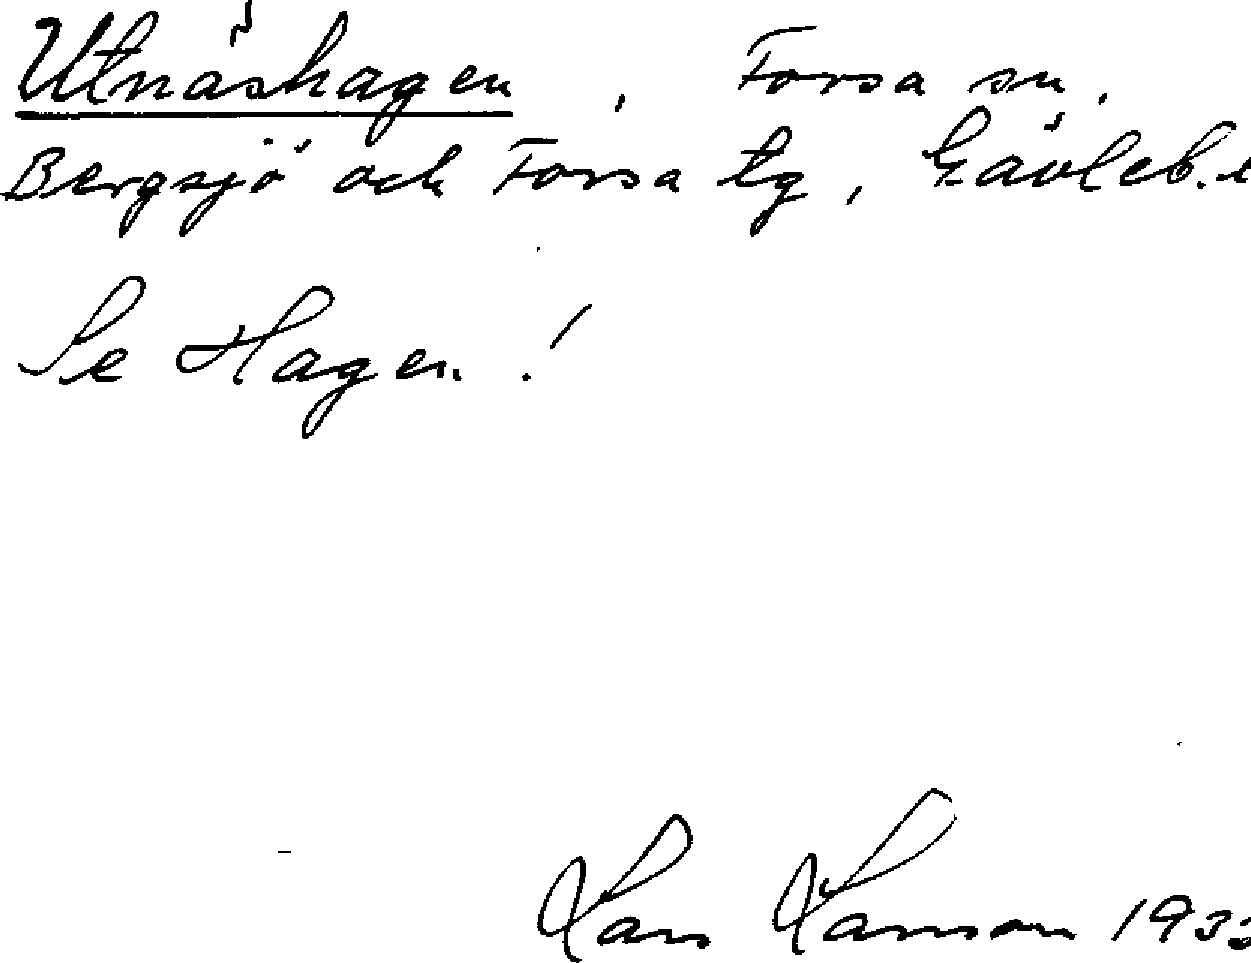 Utnäshagen, Forsa sn.
Bergsjö och Forsa tg, Gävleb. l
Se Hagen!
Lars Larsson 1933